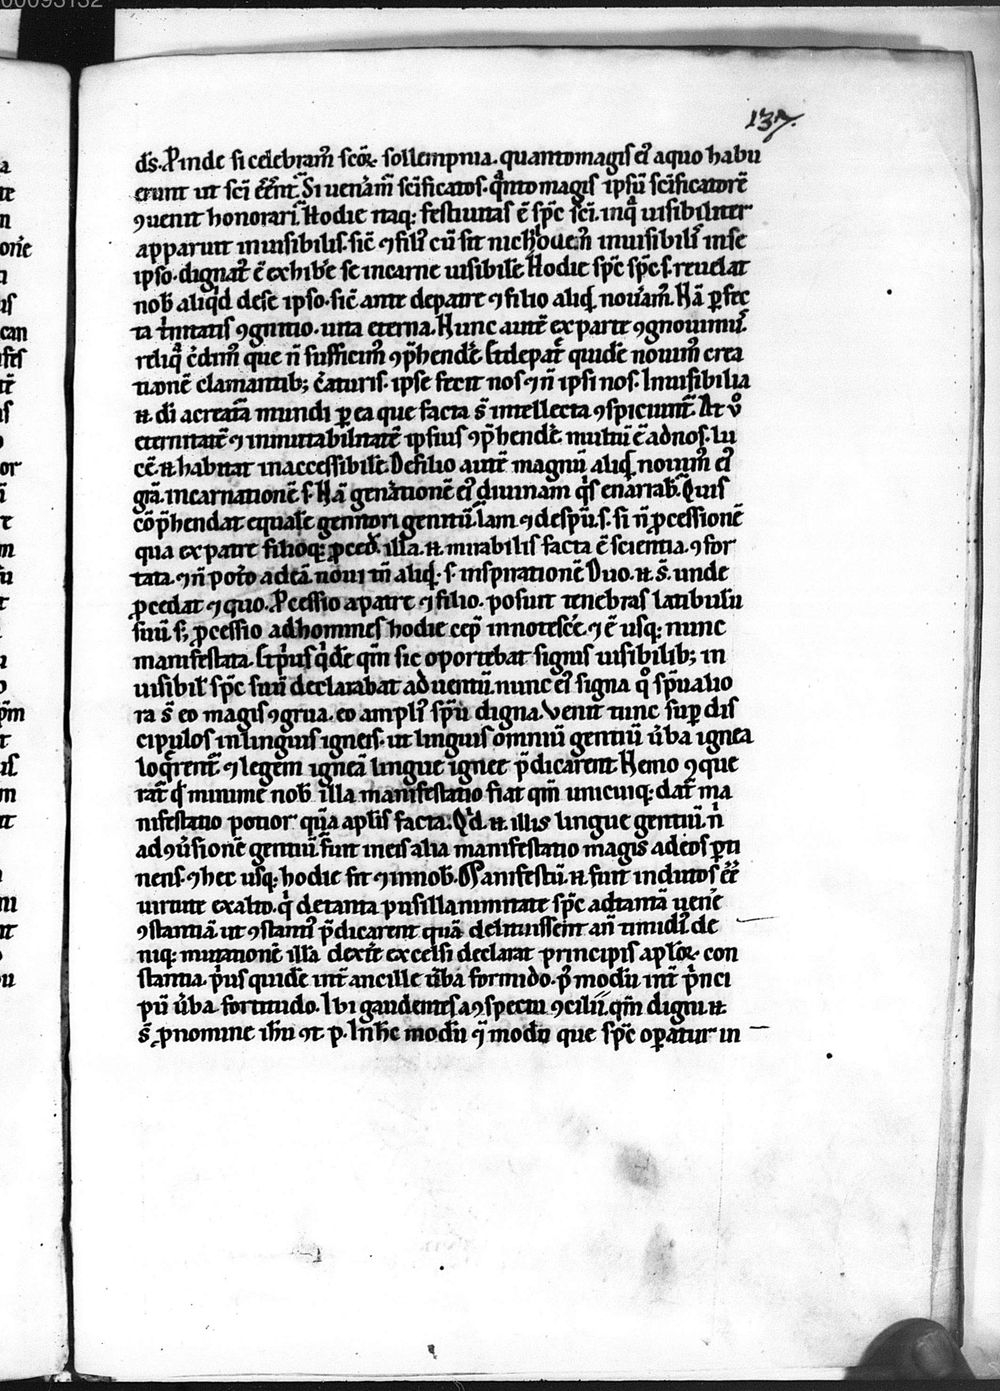 137.
ds. Proinde si celebram᷒ scōꝝ sollempnia. quantomagis ei᷒ aquo habu
erunt ut sci ēēnt. Si uenam᷒ scificatos. qnto magis ipsū scificatorē
ꝯuenit honorari. Hodie naq; festiuitas ē spc sci. inq uisibiliter
apparuit inuisibilis. sic ⁊ fili᷒ cū sit nichominꝰ inuisibilis inse
ipso. dignat᷒ ē exhibe se incarne uisibilē. Hodie spc spc s. reuelat
nob aliqd dese ipso. sic ante depatre ⁊ filio aliqd nouam᷒. Nā ꝑfec
ta tinitatis ꝯgnitio. uita eterna. Nunc autē exparte ꝯgnouimꝰ.
reliq cdimꝰ que n sufficimꝰ ꝯphende. Et depat quidē nouimꝰ crea
tionē clamantib; caturis. ipse fecit nos ⁊ n ipsi nos. Inuisibilia
.n. di acreata mundi ꝑ ea que facta s intellecta ꝯspiciunt. At u
eternitatē ⁊ inmutabilitatē ipsius ꝯphende multū ē adnos. lu
cē .n. habitat inaccessibilē. De filio autē magnū aliqd nouimꝰ ei᷒
gra. incarnationē s. Nā genationē ei᷒ diuinam qs enarrab. Quis
cōphendat equalē genitori genitū. Iam ⁊ despū. s. si n ꝓcessionē
qua expatre filioq; ꝓced. illa .n. mirabilis facta ē scientia. ꝯfor
tata. ⁊ n poto adeā. noui tn aliqd. s. inspirationē. Duo .n. s. unde
ꝓcedat ⁊ quo. Pcessio apatre ⁊ filio. posuit tenebras latibulū
suū. s; ꝓcessio adhomines hodie cep innotesce. ⁊ ē usq; nunc
manifestata. Et pus qde qm sic oportebat signis uisibilib; in
uisibil spc suū declarabat aduentū. nunc ei᷒ signa q spualio
ra s eo magis ꝯgrua. eo ampli᷒ spu digna. Venit tunc sup dis
cipulos inlinguis igneis. ut linguis omniū gentiū uba ignea
loqrent᷒. ⁊ legem igneā lingue ignee pdicarent. Nemo ꝯque
rat᷒ qd minime nob illa manifestatio fiat. qm unicuiq; dat᷒ ma
nifestatio potior quia aplis facta. Qd .n. illis lingue gentiū n
adꝯusionē gentiū. fuit ineis alia manifestatio magis adeos ꝑti
nens. ⁊ hec usq; hodie fit ⁊ innob. Manifestū .n. fuit indutos eē
uirtute exalto. q detanta pusillanimitate spc adtantā uene
ꝯstantiā. ut ꝯstant᷒ pdicarent quā delituissent an timidi. de
niq; mutationē illā dexte excelsi declarat principis aploꝝ con
stantia. pus quidē int ancille uba formido. p modū int pnci
pū uba fortitudo. Ibi gaudentes aꝯspectu ꝯcilii. qm digni .n.
s. ꝓnomine ihu ꝯt p. In hc modū q modo que spc opatur in